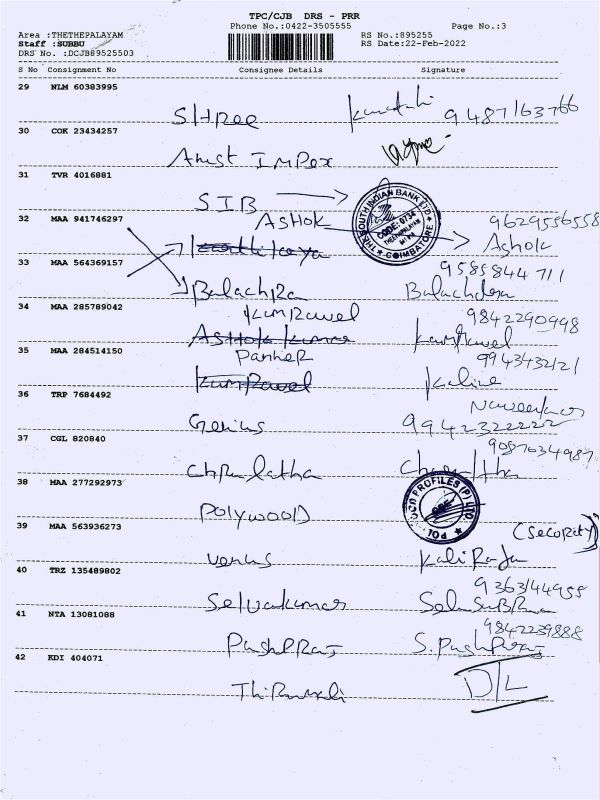 TPC/CJB DRS - PRR
Phone No.:0422-3505555 Page No.:3
Area :THETHEPALAYAM RS No.:895255
Staff :SUBBU RS Date:22-Feb-2022
DRS No. :DCJB89525503
S No Consignment No Consignee Details Signature
29 NLM 60383995
SHree 9487163766
30 COK 23434257
Amst Impex
31 TVR 4016881
SIB THE SOUTH INDIAN BANK LTD. CODE: 0734 COIMBATORE
32 MAA 941746297
ASHOK 9629556558
Ashok
33 MAA 564369157
9585844711
Balachra Balachdra
34 MAA 285789042
KumRavel 9842290998
Ashok Kumar
35 MAA 284514150
Panner 9943432121
KumRavel
36 TRP 7684492
Naveenkumar
Genius 9942322222
37 CGL 820840
9087634987
Chrulatha
38 MAA 277292973
POLYWOOD POLYWOOD PROFILES (P) LTD
39 MAA 563936273
(Security)
Venus KaliRaja
40 TRZ 135489802
9363144955
Selvakumar
41 NTA 13081088
9842239888
PushpRaj S. PushpRaj
42 KDI 404071
Thirumali D/L